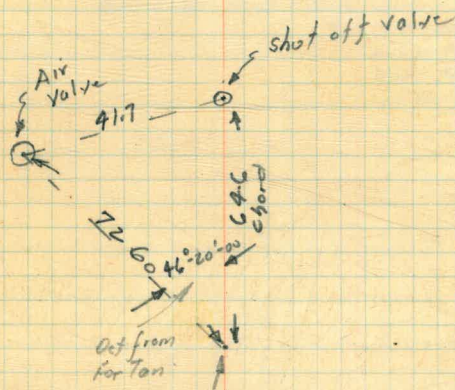 shut off valve
Air
valve
41.7
646
chord
7260
46°-20'-00
from
For Tan